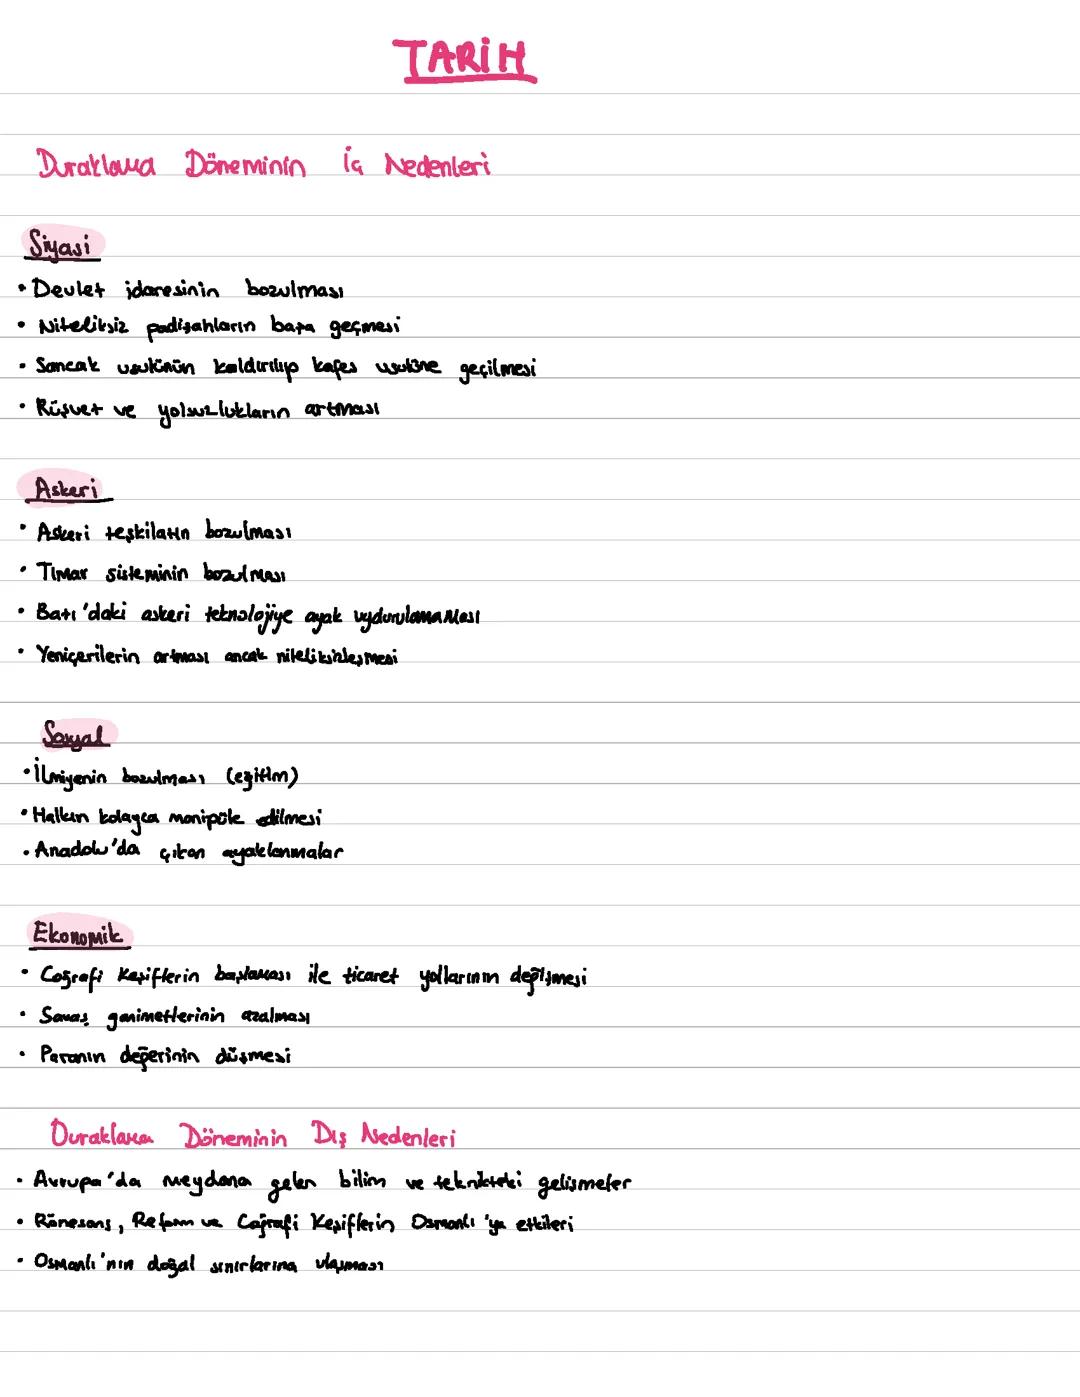 TARİH
Duraklama Döneminin İç Nedenleri
Siyasi
• Devlet idaresinin bozulması
• Niteliksiz padişahların başa geçmesi
• Sancak usulünün kaldırılıp kafes usulüne geçilmesi
• Rüşvet ve yolsuzlukların artması
Askeri
• Askeri teşkilatın bozulması
• Tımar sisteminin bozulması
• Batı'daki askeri teknolojiye ayak uydurulamaması
• Yeniçerilerin artması ancak niteliksizleşmesi
Sosyal
• İlmiyenin bozulması (eğitim)
• Halkın kolayca manipüle edilmesi
• Anadolu'da çıkan ayaklanmalar
Ekonomik
• Coğrafi Keşiflerin başlaması ile ticaret yollarının değişmesi
• Savaş ganimetlerinin azalması
• Paranın değerinin düşmesi
Duraklama Döneminin Dış Nedenleri
• Avrupa'da meydana gelen bilim ve teknikteki gelişmeler
• Rönesans, Reform ve Coğrafi Keşiflerin Osmanlı'ya etkileri
• Osmanlı'nın doğal sınırlarına ulaşması